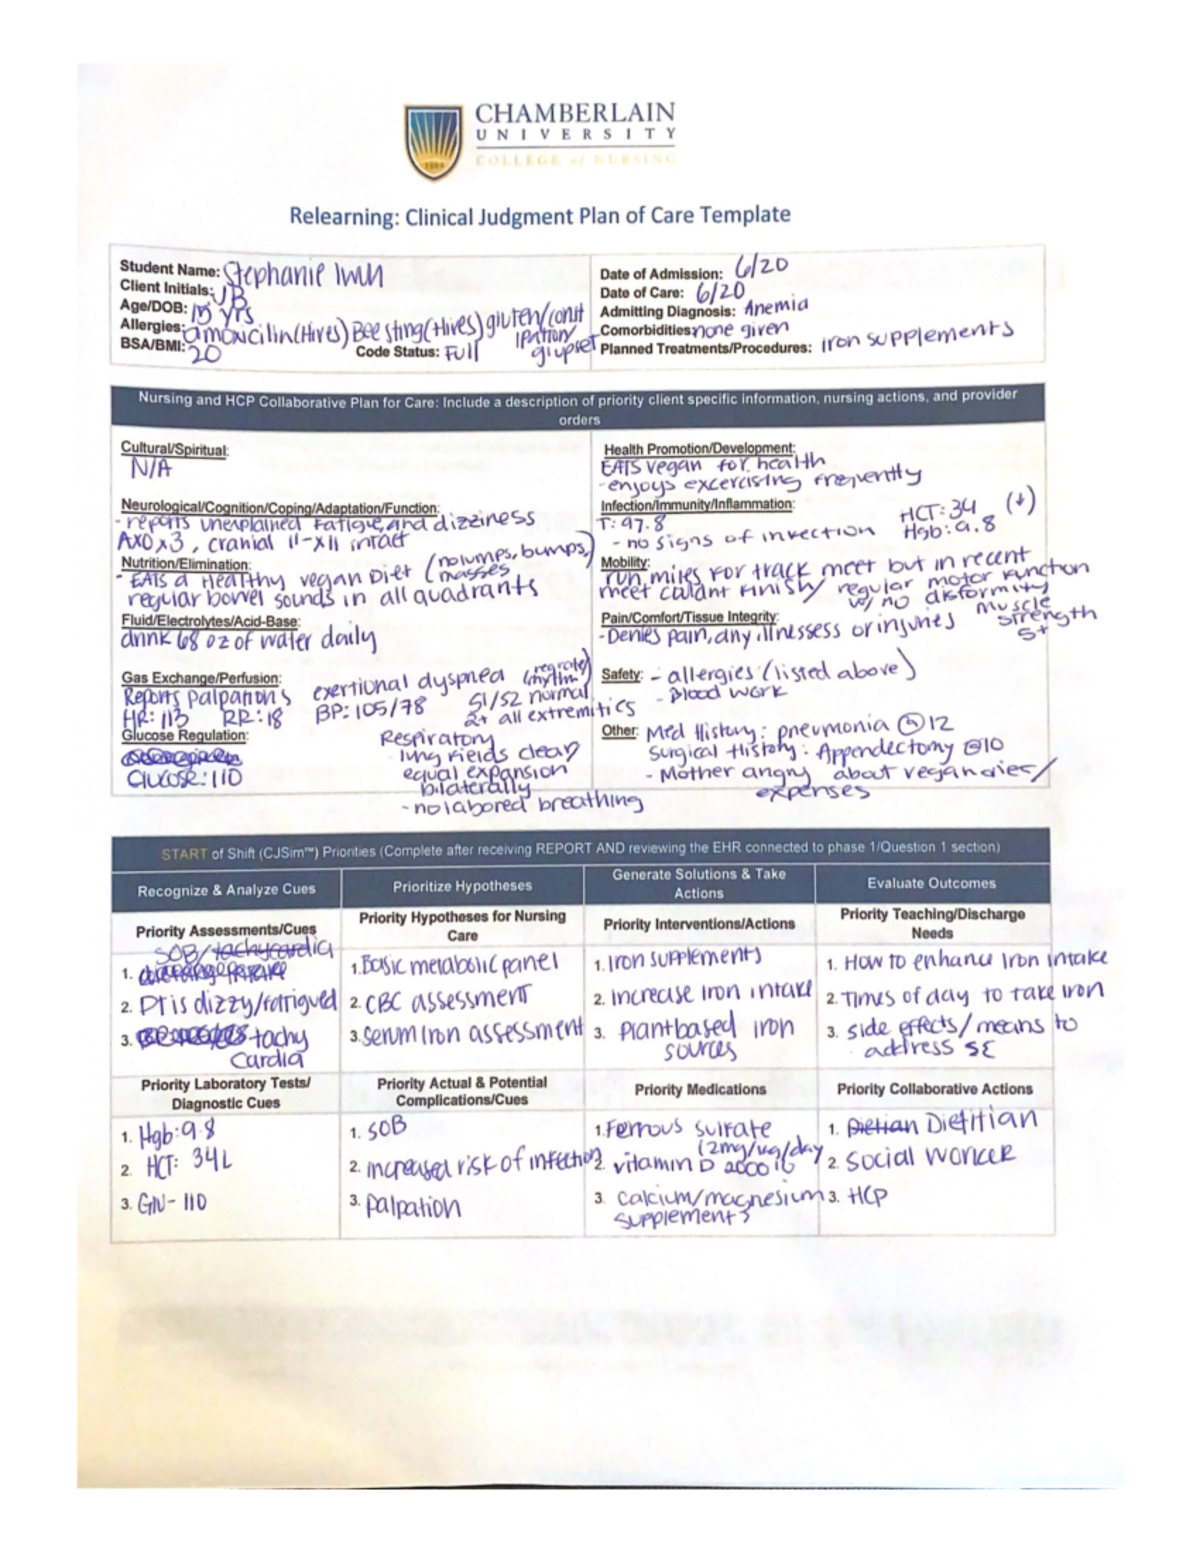 CHAMBERLAIN
UNIVERSITY
COLLEGE of NURSING
Relearning: Clinical Judgment Plan of Care Template
Student Name: Stephanie Iwuh
Client Initials: JB
Age/DOB: 15 yrs
Allergies: amoxcilin(Hives) Bee sting(Hives) gluten/const
ipation/
gi upset
BSA/BMI: 20
Code Status: Full
Date of Admission: 6/20
Date of Care: 6/20
Admitting Diagnosis: Anemia
Comorbidities: none given
Planned Treatments/Procedures: iron supplements
Nursing and HCP Collaborative Plan for Care: Include a description of priority client specific information, nursing actions, and provider
orders
Cultural/Spiritual:
N/A
Neurological/Cognition/Coping/Adaptation/Function:
- reports unexplained fatigue and dizziness
AXO x3, cranial II-XII intact
Nutrition/Elimination: (no lumps, bumps,)
masses
- EATS a Healthy vegan Diet
regular bowel sounds in all quadrants
Fluid/Electrolytes/Acid-Base:
drink 68 oz of water daily
Gas Exchange/Perfusion:
Reports Palpations exertional dyspnea (reg rate/
rhythm)
HR: 113 RR: 18 BP: 105/78 S1/S2 normal
2+ all extremities
Glucose Regulation:
Glucose: 110
Respiratory
lung fields clear
equal expansion
bilaterally
- no labored breathing
Health Promotion/Development:
EATS vegan for health
- enjoys excercising frequently
Infection/Immunity/Inflammation:
T: 97.8 HCT: 34 (↓)
Hgb: 9.8
- no signs of infection
Mobility:
run miles for track meet but in recent
meet couldnt finish/ regular motor function
w/ no disformity
muscle
strength
5+
Pain/Comfort/Tissue Integrity:
- Denies pain, any illnessess or injuries
Safety: - allergies (listed above)
- Blood work
Other: Med History: pneumonia @ 12
Surgical History: Appendectomy @10
- Mother angry about vegan dries/
expenses
START of Shift (CJSim™) Priorities (Complete after receiving REPORT AND reviewing the EHR connected to phase 1/Question 1 section)
Recognize & Analyze Cues
Prioritize Hypotheses
Generate Solutions & Take
Actions
Evaluate Outcomes
Priority Assessments/Cues
SOB/tachycardia
1.
2. Pt is dizzy/fatigued
3. tachy
cardia
Priority Hypotheses for Nursing
Care
1. Basic metabolic panel
2. CBC assessment
3. Serum Iron assessment
Priority Interventions/Actions
1. Iron supplements
2. increase Iron intake
3. Plantbased iron
sources
Priority Teaching/Discharge
Needs
1. How to enhance Iron intake
2. Times of day to take iron
3. side effects/means to
address SE
Priority Laboratory Tests/
Diagnostic Cues
1. Hgb: 9.8
2. HCT: 34L
3. Glu- 110
Priority Actual & Potential
Complications/Cues
1. SOB
2. increased risk of infection
3. Palpation
Priority Medications
1. Ferrous sulfate
(2mg/kg/day
2. vitamin D 2000 iu
3. calcium/magnesium
supplements
Priority Collaborative Actions
1. Dietian Dietitian
2. Social worker
3. HCP